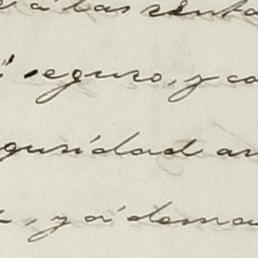 á las renta
seguro, y co
guridad an
, y á dema